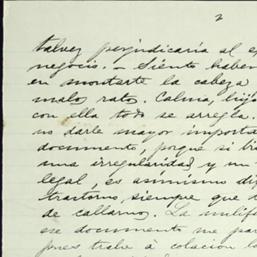 2
talvez perjudicaría al e
negocio. — Siento haber
en montarte la cabeza
malos ratos. Calma, hija
con ella todo se arregla.
no darle mayor importa
documento, porque si bi
una irregularidad y un
legal, es asimismo di
trastorno, siempre que
de callarnos. La
ese documento me pa
pues trahe a colación la